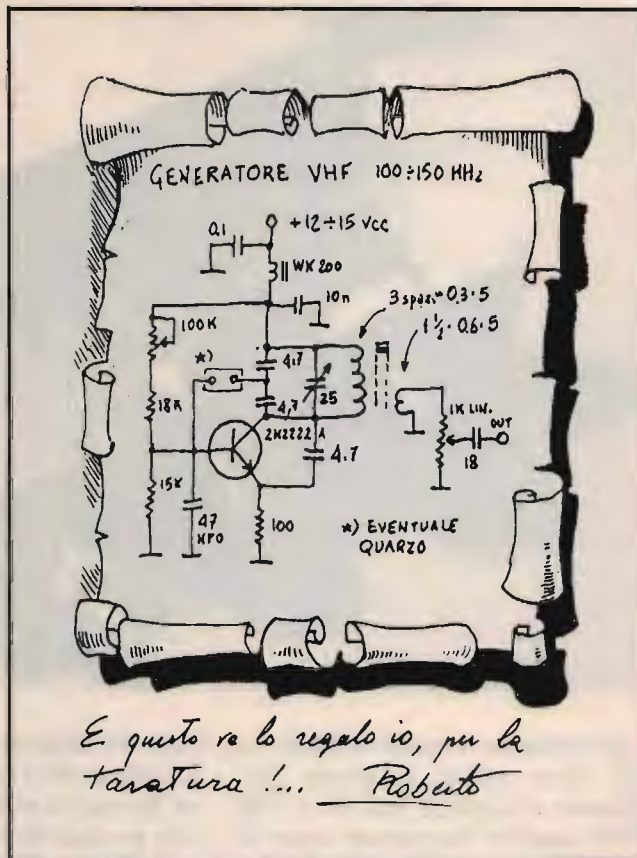 GENERATORE VHF 100÷150 MHz
+12÷15 Vcc
0.1
WK 200
10n
3 spaz. 0.3·5
1 1/2 · 0.6·5
100K
*)
4.7
25
18K
4,7
2N2222 A
1K LIN.
OUT
4.7
18
15K
47
NPO
100
*) EVENTUALE
QUARZO
E questo ve lo regalo io, per la
taratura !... Roberto